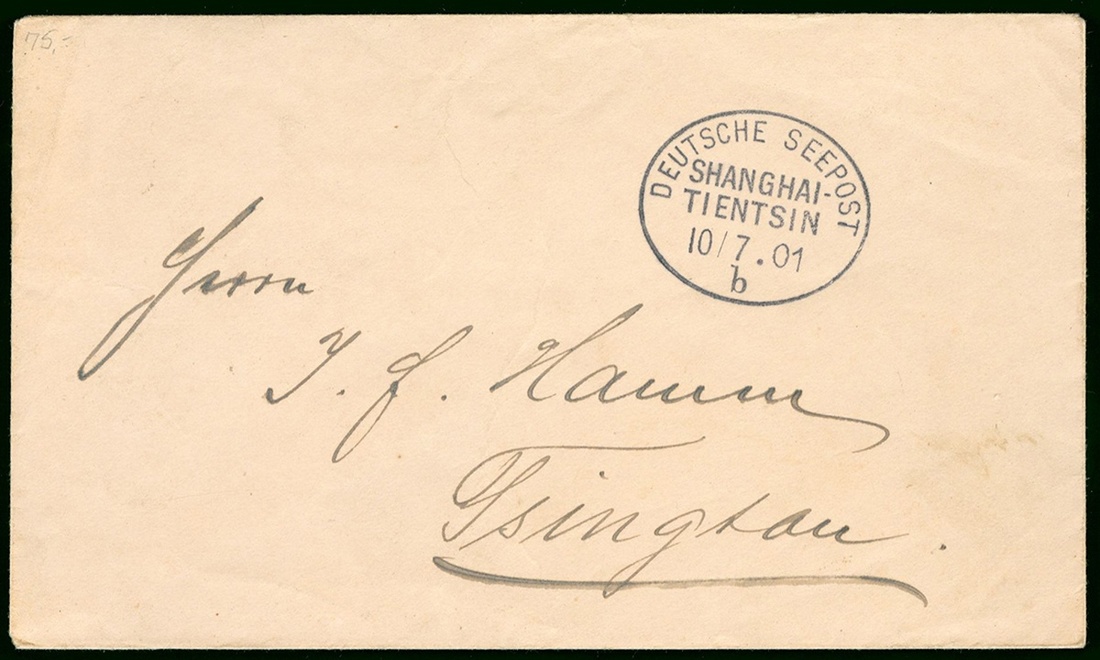 75,-
DEUTSCHE SEEPOST
SHANGHAI-
TIENTSIN
10/7.01
b
Herrn
J. f. Hamm
Tsingtau.